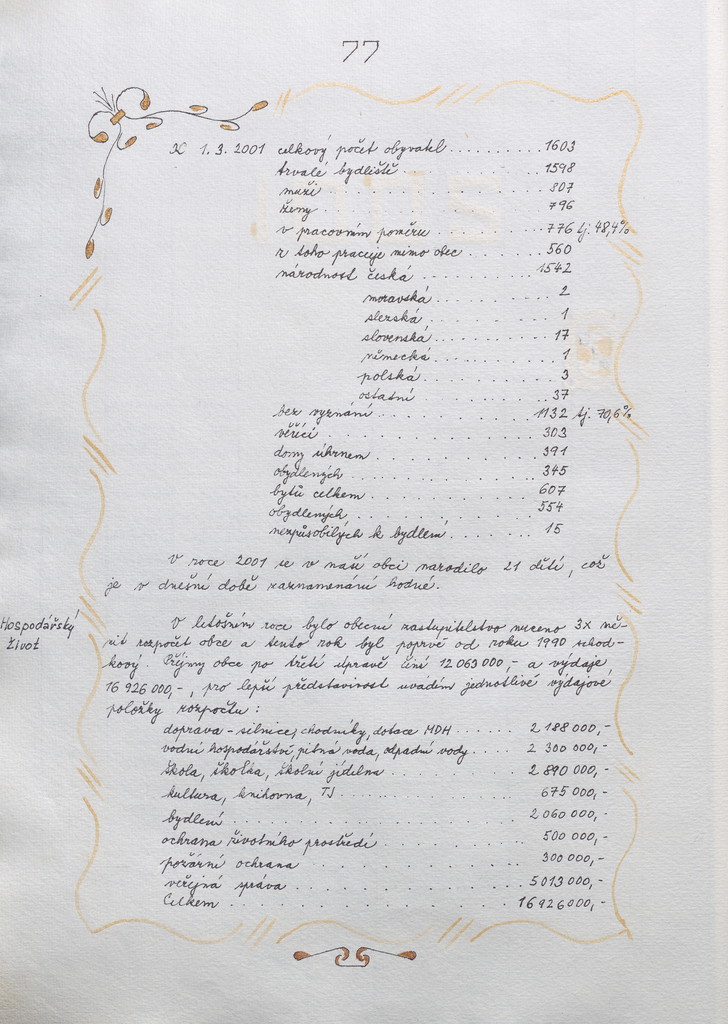 77
K 1.3.2001 celkový počet obyvatel..........1603
trvalé bydliště..............1598
muži..............807
ženy..............796
v pracovním poměru..........776 tj. 48,4%
z toho pracuje mimo obec........560
národnost česká............1542
moravská..........2
slezská..........1
slovenská..........17
německá..........1
polská..........3
ostatní..........37
bez vyznání..............1132 tj. 70,6%
věřící..............303
domy úhrnem............391
obydlených............345
bytů celkem............607
obydlených............554
nezpůsobilých k bydlení........15
V roce 2001 se v naší obci narodilo 21 dětí, což
je v dnešní době zaznamenání hodné.
Hospodářský
život
V letošním roce bylo obecní zastupitelstvo nuceno 3x mě-
nit rozpočet obce a tento rok byl poprvé od roku 1990 schod-
kový. Příjmy obce po třetí úpravě činí 12 063 000,- a výdaje
16 926 000,-, pro lepší představivost uvádím jednotlivé výdajové
položky rozpočtu:
doprava - silnice, chodníky, dotace MDH......2 188 000,-
vodní hospodářství pitná voda, odpadní vody....2 300 000,-
škola, školka, školní jídelna............2 890 000,-
kultura, knihovna, TJ..............675 000,-
bydlení..................2 060 000,-
ochrana životního prostředí............500 000,-
požární ochrana..............300 000,-
veřejná správa..............5 013 000,-
Celkem..................16 926 000,-